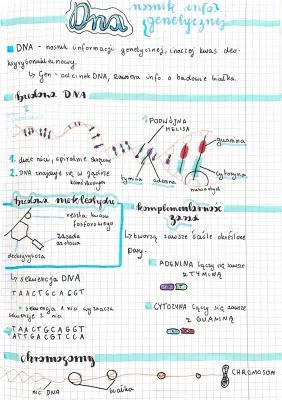 Dna
nośnik infor
genetycznej
DNA - nośnik informacji genetycznej, inaczej kwas deo-
ksyrybonukleinowy.
↳ Gen - odcinek DNA, zawiera info. o budowie białka.
Budowa DNA
PODWÓJNA
HELISA
guanina
1. dwie nici, spiralnie skręcone
2. DNA znajduje się w jądrze
komórkowym
tymina
adenina
cytozyna
nukleotyd
Budowa nukleotydu
reszta kwasu
fosforowego
zasada
azotowa
deoksyryboza
komplementarność
zasad
↳ tworzą zawsze ściśle określone
pary.
ADENINA łączy się zawsze
z TYMINĄ
CYTOZYNA łączy się zawsze
z GUANINĄ
↳ sekwencja DNA
TAACTGCAGGT
↳ sekwencja 1 nici wyznacza
sekwencję 2 nici
TAACTGCAGGT
ATTGACGTCCA
chromosomy
CHROMOSOM
nić DNA
białka